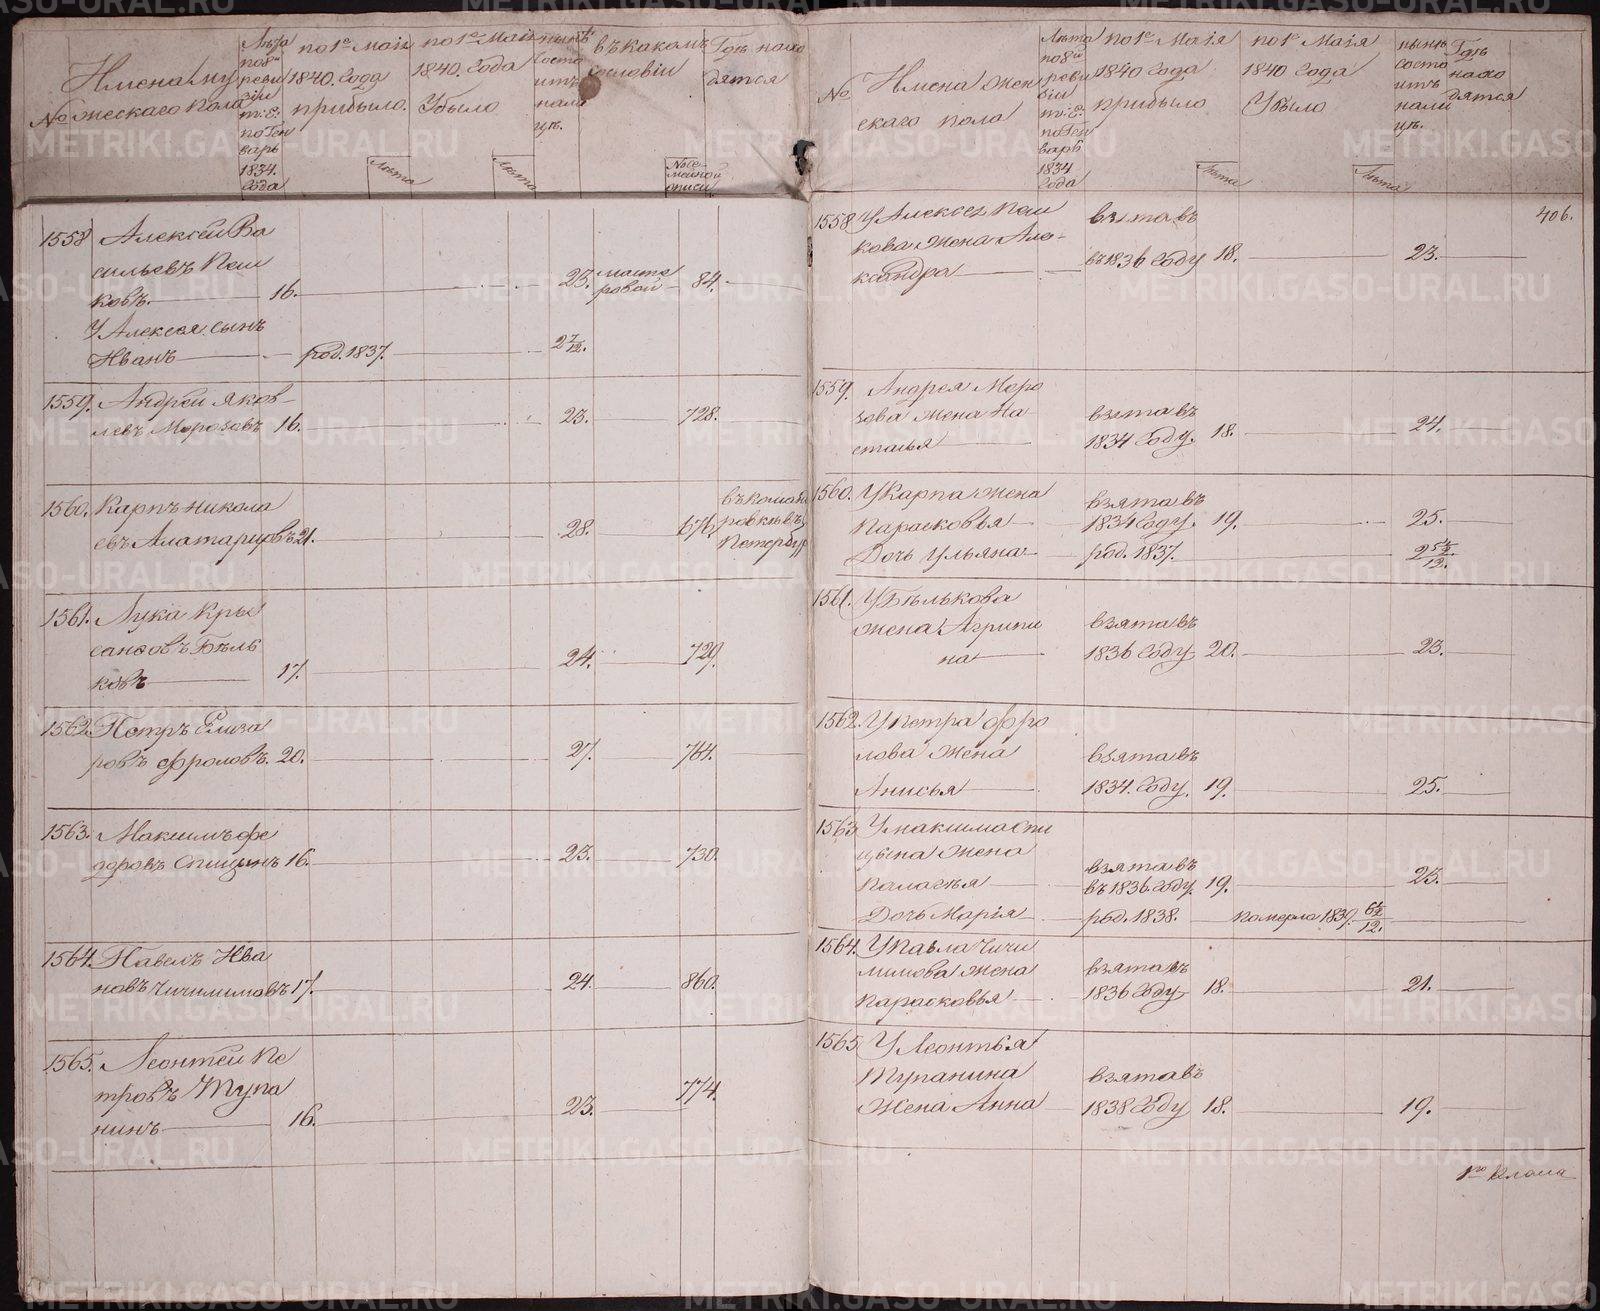 №
Имена му
жескаго пола
Лѣта
по 8й
реви
зіи
т: е.
по Ген
варь
1834.
года
по 1е Маія
1840. года
прибыло.
Лѣта
по 1е Маія
1840. года
Убыло
Лѣта
нынѣ
состо
итъ
нали
цѣ.
въ какомъ
сословіи
№ се-
мейной
описи
Гдѣ нахо
дятся
1558 Алексѣй Ва
сильевъ Пеш
ковъ. 16. 23. масте
ровой 84.
У Алексея сынъ
Иванъ род. 1837. 2 7/12.
1559. Андрей Яков-
левъ Морозовъ 16. 23. 728.
1560. Карпъ Никола
евъ 21. 28. 676.
въ коман
Петербур
1561. Лука Кры
сановъ Бѣль
ковъ 17. 24. 729.
1562. Петръ Елиза
ровъ Фроловъ. 20. 27. 764.
1563. Максимъ Фе
доровъ Спицынъ 16. 23. 730.
1564. Павелъ Ива
новъ Чичилимовъ 17. 24. 860.
1565. Леонтей Пе
тровъ Тупа
нинъ 16. 23. 774.
№
Имена жен
скаго пола
Лѣта
по 8й
реви
зіи
т: е.
по Ген
варь
1834
года
по 1е Маія
1840 года
прибыло
Лѣта
по 1е Маія
1840 года
Убыло
Лѣта
нынѣ
состо
итъ
нали
цѣ.
Гдѣ
нахо
дятся
406.
1558 У Алексея Пеш
кова жена Але-
ксандра
взята въ
въ 1836 году 18. 23.
1559. Андрея Моро
зова жена На
сталья
взята въ
1834 году. 18. 24.
1560. У Карпа жена
Парасковья
взята въ
1834 году. 19. 25.
Дочь Ульяна род. 1837.
1561. У Бѣлькова
жена Агрипи
на
взята въ
1836 году 20. 23.
1562. У Петра Фро
лова жена
Анисья
взята въ
1834. году. 19. 25.
1563 У Максима Спи
цына жена
Паласья
взята въ
въ 1836 году. 19. 23.
Дочь Марія род. 1838. померла 1839.
1564. У Павла Чичи
лимова жена
Парасковья
взята въ
1836 году 18. 21.
1565 У Леонтья
Тупанина
жена Анна
взята въ
1838 году 18. 19.
METRIKI.GASO-URAL.RU